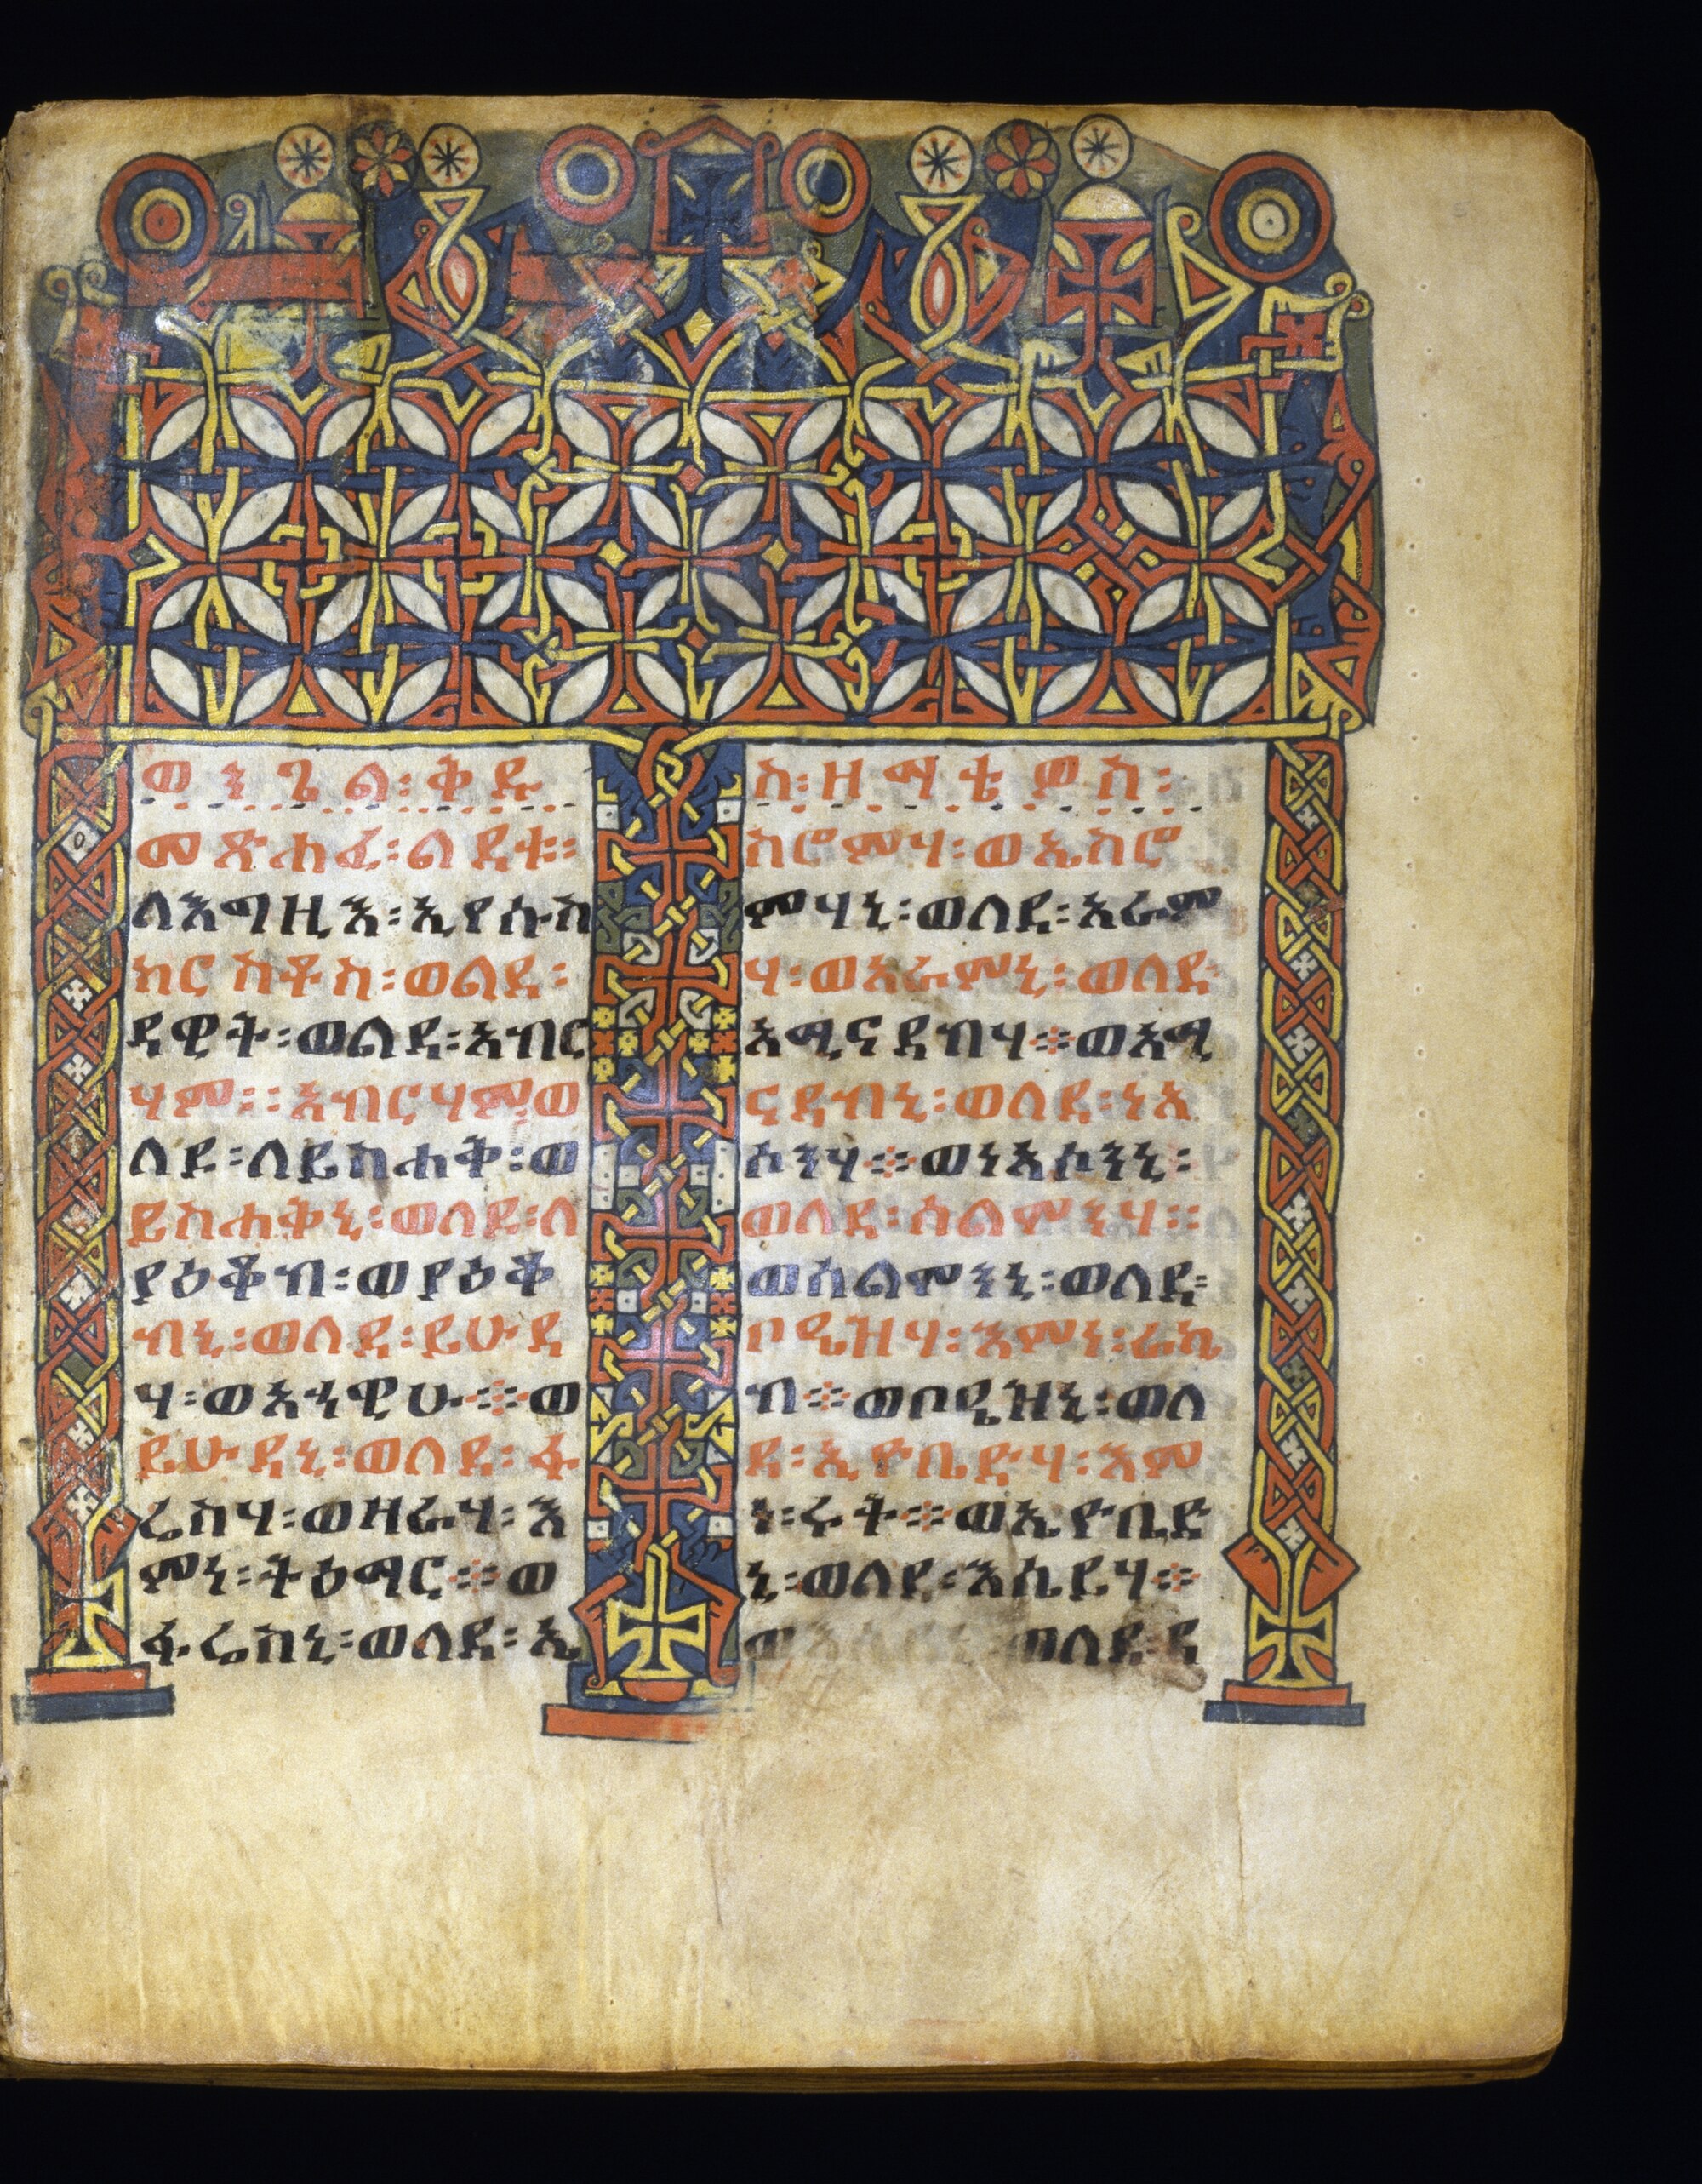 ወንጌል፡ቅዱ
መጽሐፈ፡ልደቱ፡፡
ለእግዚእ፡ኢየሱስ
ክርስቶስ፡ወልደ፡
ዳዊት፡ወልደ፡አብር
ሃም፡፡አብርሃምወ
ለደ፡ለይስሐቅ፡ወ
ይስሐቅኒ፡ወለደ፡ለ
ያዕቆብ፡ወያዕቆ
ብኒ፡ወለደ፡ይሁዳ
ሃ፡ወአኃዊሁ፨ወ
ይሁዳኒ፡ወለደ፡ፋ
ሬስሃ፡ወዛራሃ፡እ
ምነ፡ትዕማር፨ወ
ፋሬስኒ፡ወለደ፡ኤ
ስ፡ዘማቴዎስ፡
ስሮምሃ፡ወኤስሮ
ምሃኒ፡ወለደ፡አራም
ሃ፡ወአራምኒ፡ወለደ
አሚናዳብሃ፨ወአሚ
ናዳብኒ፡ወለደ፡ነአ
ሶንሃ፨ወነአሶንኒ፡
ወለደ፡ሰልሞንሃ፡፡
ወሰልሞንኒ፡ወለደ፡
ቦዔዝሃ፡እምነ፡ራኬ
ብ፨ወቦዔዝኒ፡ወለ
ደ፡ኢዮቤድሃ፡እም
ነ፡ሩት፨ወኢዮቤድ
ኒ፡ወለደ፡እሴይሃ፨
ወለደ፡ዳ